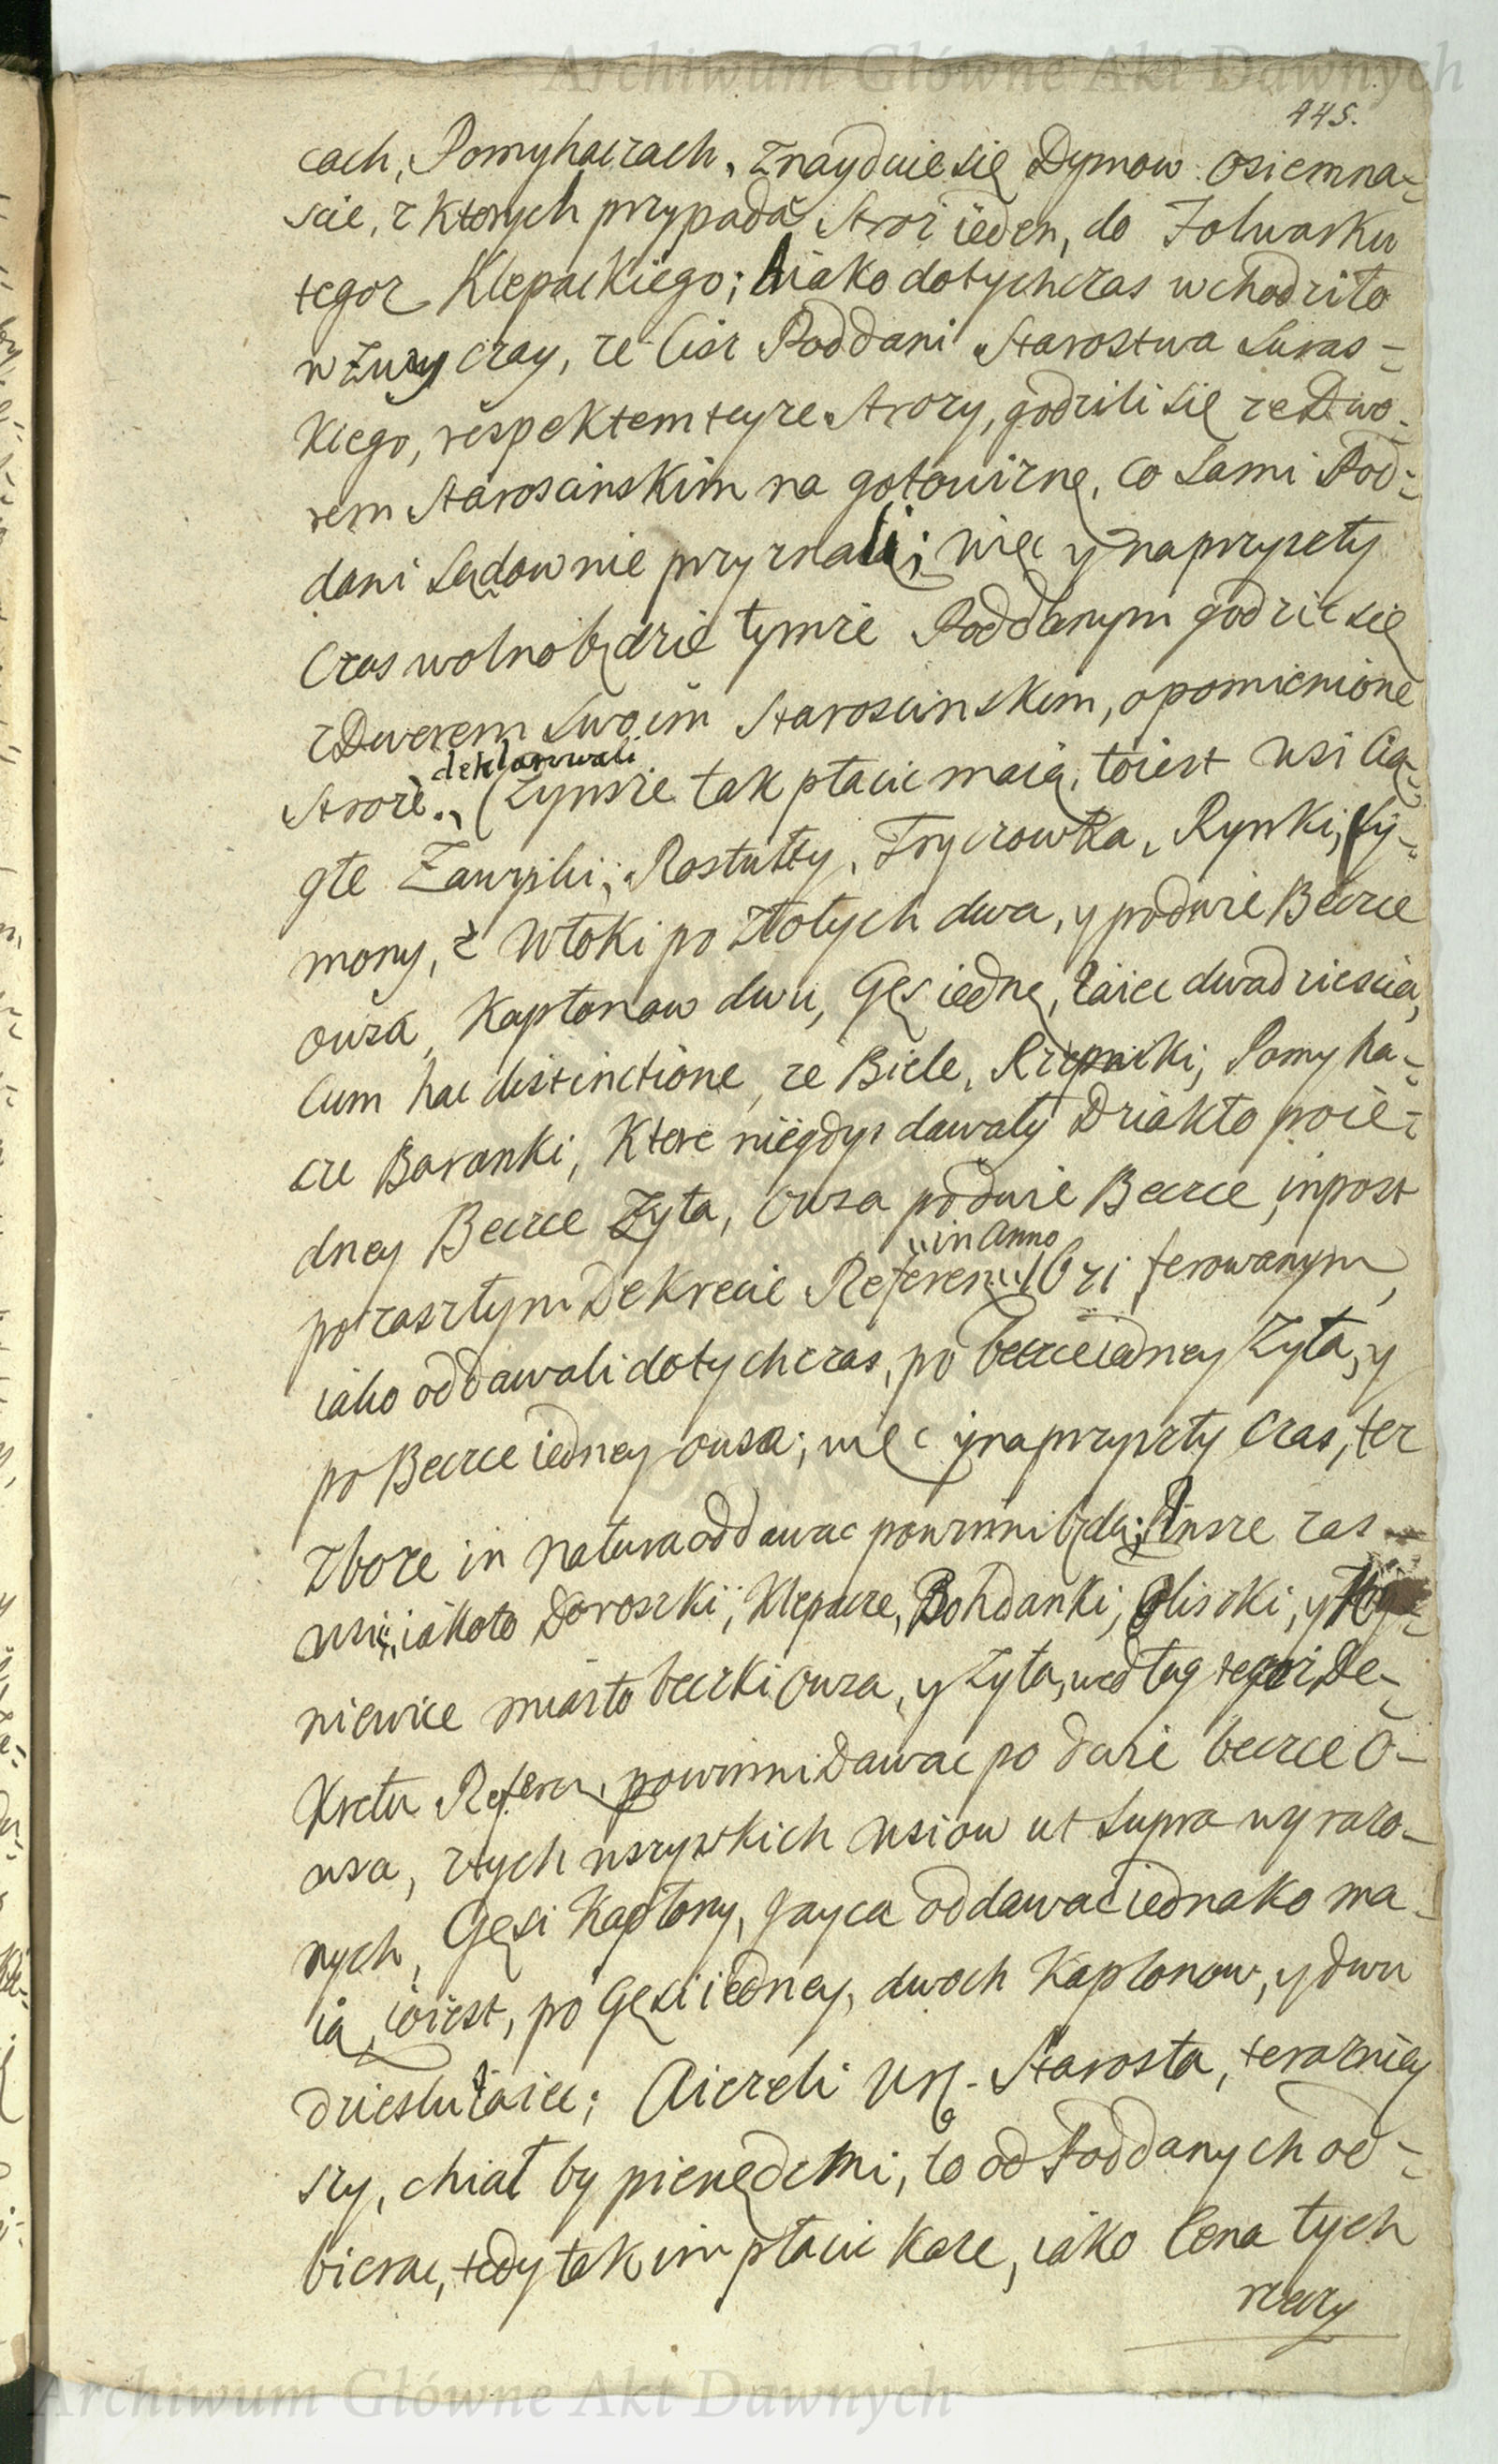 Archiwum Główne Akt Dawnych
445.
cach, Pomyhaczach, znayduie się Dymow osiemna=
scie, z ktorych przypada Stroż ieden, do Folwarku
tegoz Klepackiego; A iako dotychczas wchodziło
w Zwyczay, ze ciż Poddani Starostwa Suras=
kiego, respektem teyze Strozy, godzili się ze Dwo=
rem Staroscinskim na gotowiznę, co sami Pod=
dani sądownie przyznali; więc y na przyszły
Czas wolno będzie tymże Poddanym godzic się
z Dworem swoim Staroscinskim, o pomienione
deklarowali
Stroże. Czynsze tak płacic maią, toiest wsi Cią=
głe Zawyki, Rostołty, Tryczowka, Rynki, Ły=
mony, z Włoki po złotych dwa, y po dwie Beczce
owsa, Kapłonow dwu, Gęs iednę, Iaiec dwadziescia,
Cum hac distinctione, ze Biele, Rzepniki, Pomyha=
cze Baranki, ktore niegdyś dawały Dziakło po ie=
dney Beczce Zyta, Owsa po dwie Beczce, in post
in Anno
po zaszłym Dekrecie Referen: 1621 ferowanym,
iako oddawali dotychczas, po beczce iedney Zyta, y
po Beczce iedney owsa; więc y na przyszły Czas, też
Zboze in natura oddawac powinni będą; Insze zas
wsi, iakoto Doroszki, Klepacze, Bohdanki, Oliszki, y
niewice miasto beczki Owsa, y Zyta, według tegoż De=
kretu Referen, powinni Dawac po dwie beczce O=
wsa, z tych wszystkich wsiow ut supra wyrazo=
nych, Gęsi Kapłony, Jayca oddawac iednako ma=
ią, toiest, po Gęsi iedney, dwoch Kapłonow, y dwu
dziestu Iaiec; A iezeli Ur. Starosta, terazniey
szy, chciał by pieniędzmi, to od Poddanych od=
bierac, tedy tak im płacic kaze, iako Cena tych
rzeczy
Archiwum Główne Akt Dawnych